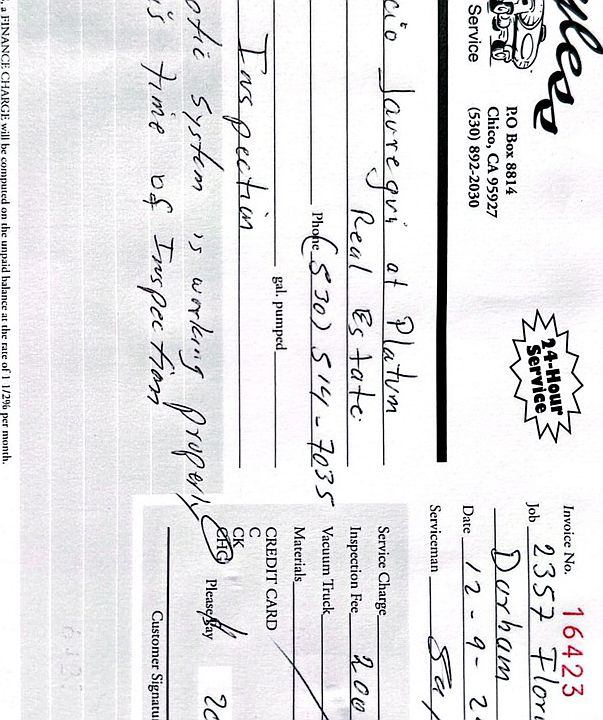 yless
Service
P.O Box 8814
Chico, CA 95927
(530) 892-2030
24-Hour
Service
Invoice No. 16423
Job 2357 Flori
Durham
Date 12-9-2
Serviceman
cio Jauregui at Platum
Real Estate
Phone (530) 514-7035
gal. pumped
Inspection
otic System is working properly
is time of Inspection
Service Charge
Inspection Fee 200
Vacuum Truck
Materials
CREDIT CARD
C
CK
CHG
Please Pay 20
Customer Signatu
, a FINANCE CHARGE will be computed on the unpaid balance at the rate of 1 1/2% per month.